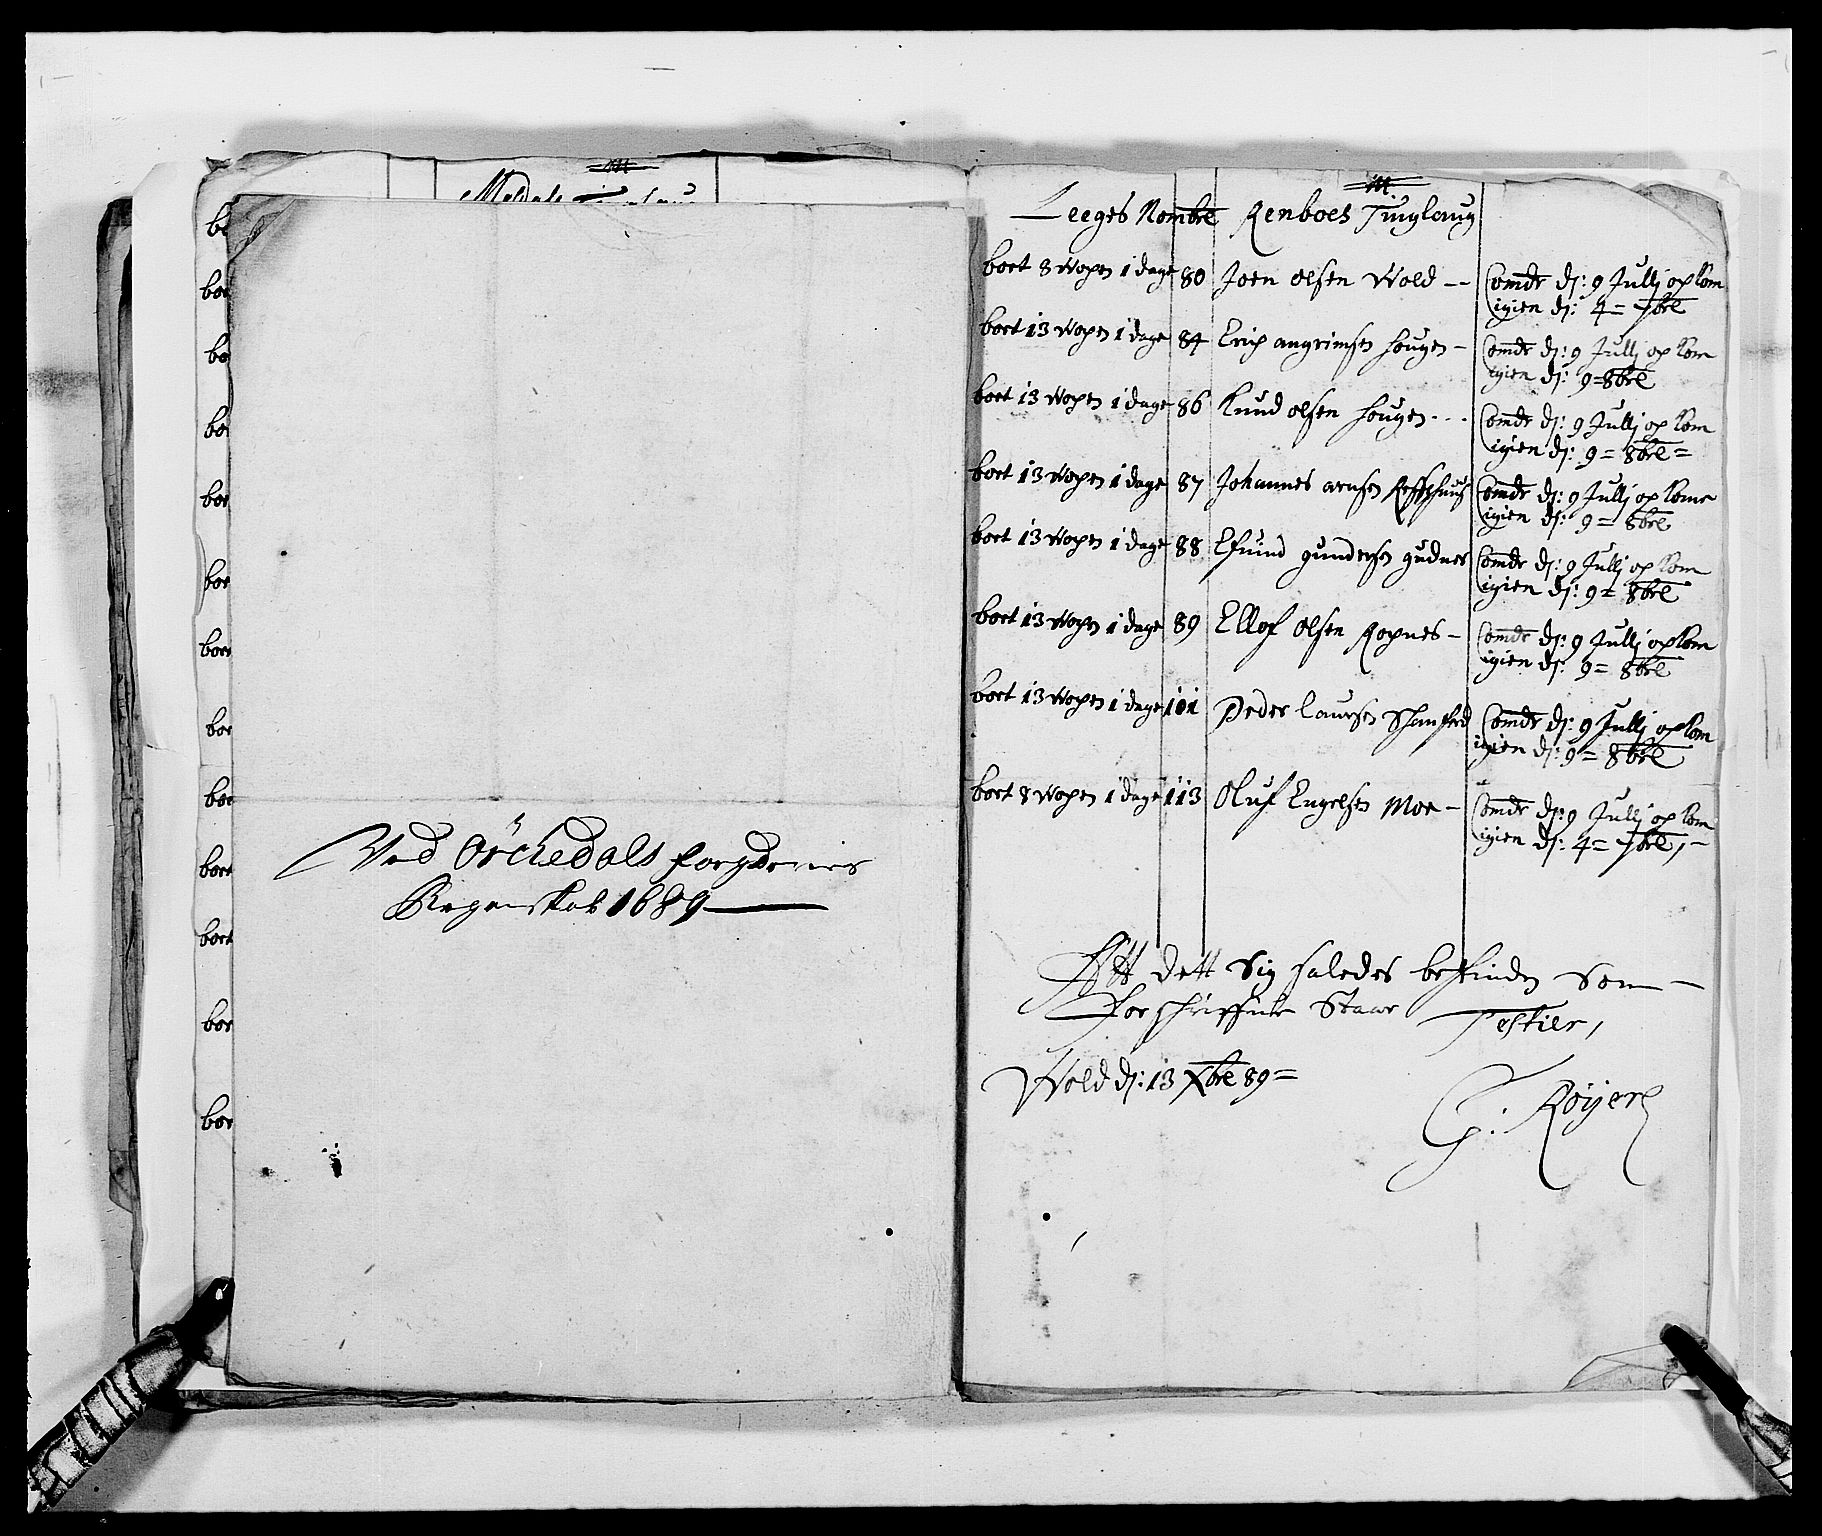 Meldals Tinglaug
Ved Örckedals fougderies
Regenskab 1689
Leeges Nombre Renboes Tinglaug
bort 8 Wogen 1 dage 80 Joen olsen Wold -- Comdr dj: 9 Jullj og kom
igien dj: 4 = 7bre
bort 13 Wogen 1 dage 84 Erich angrimsen hougen - Comdr dj: 9 Jullj og kom
igien dj: 9 = 8bre
bort 13 Wogen 1 dage 86 knud olsen hougen - - - Comdr dj: 9 Jullj og kom
igien dj: 9 = 8bre =
bort 13 Wogen 1 dage 87 Johannes arnsen Comdr dj: 9 Jullj og kome
igien dj: 9 = 8bre
bort 13 Wogen 1 dage 88 Efuind gundersen gudnes Comdr dj: 9 Jullj og kom
igien dj: 9 = 8bre
bort 13 Wogen 1 dage 89 Ellof olsen Rognes - Comdr dj: 9 Jullj og kom
igien dj: 9 = 8bre
bort 13 Wogen 1 dage 101 Peder laursen Comdr dj: 9 Jullj og kom
igien dj: 9 = 8bre
bort 8 Wogen 1 dage 113 Oluf Engelsen Moe - Comdr dj: 9 Jullj og kom
igien dj: 4 = 7bre, -
Att dett Sig saledes befinden Som -
Forschriffuit Staar Testier,
Wold dj: 13 Xbre 89 =
G: Röyer